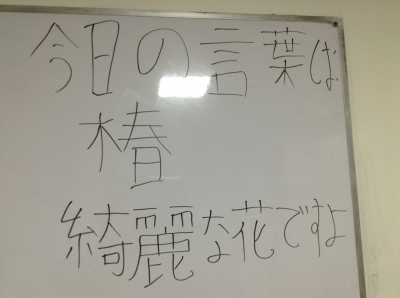 今日の言葉は
椿
綺麗な花ですよ